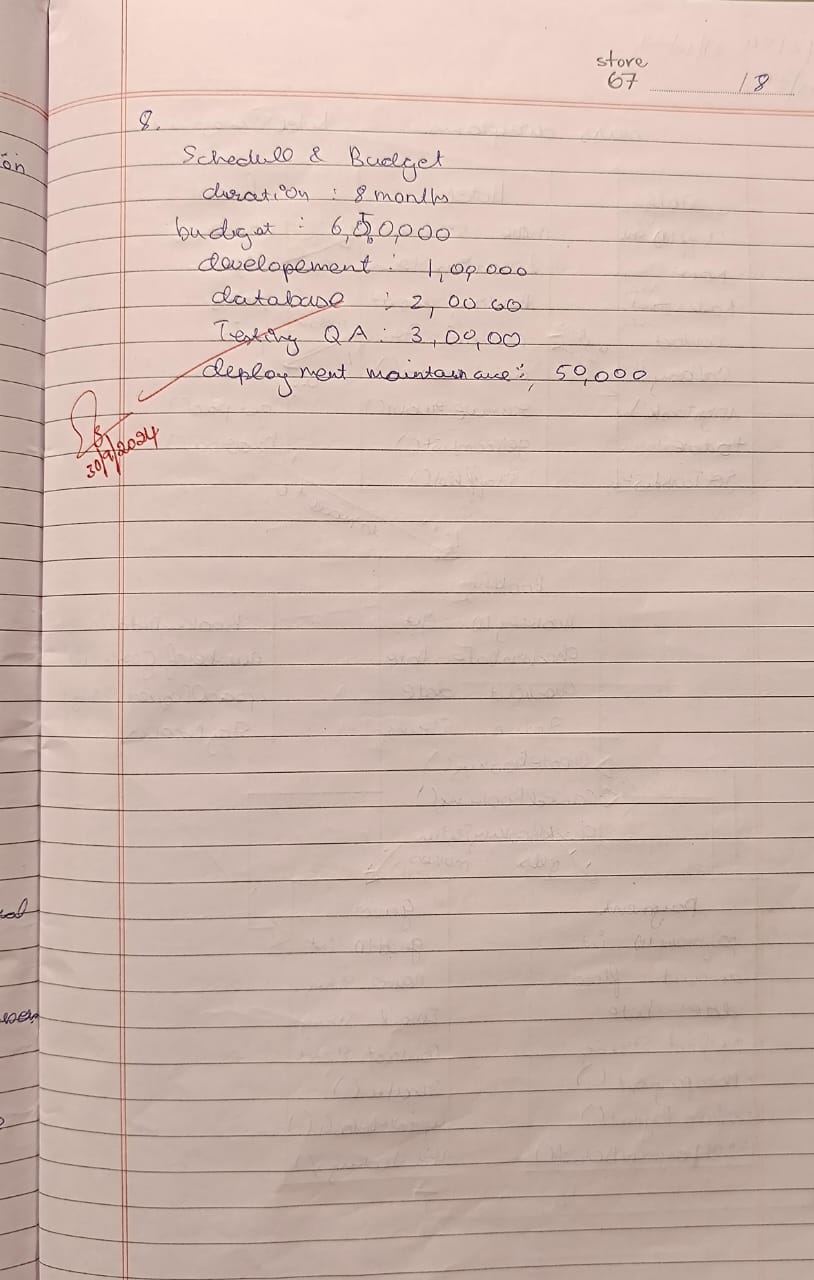 store
67 18
8.
Schedule & Budget
duration : 8 months
budget : 6,50,000
developement : 1,00,000
database : 2,00 00
Testing QA : 3,00,00
deployment maintainance : 50,000
30/9/2024
ion